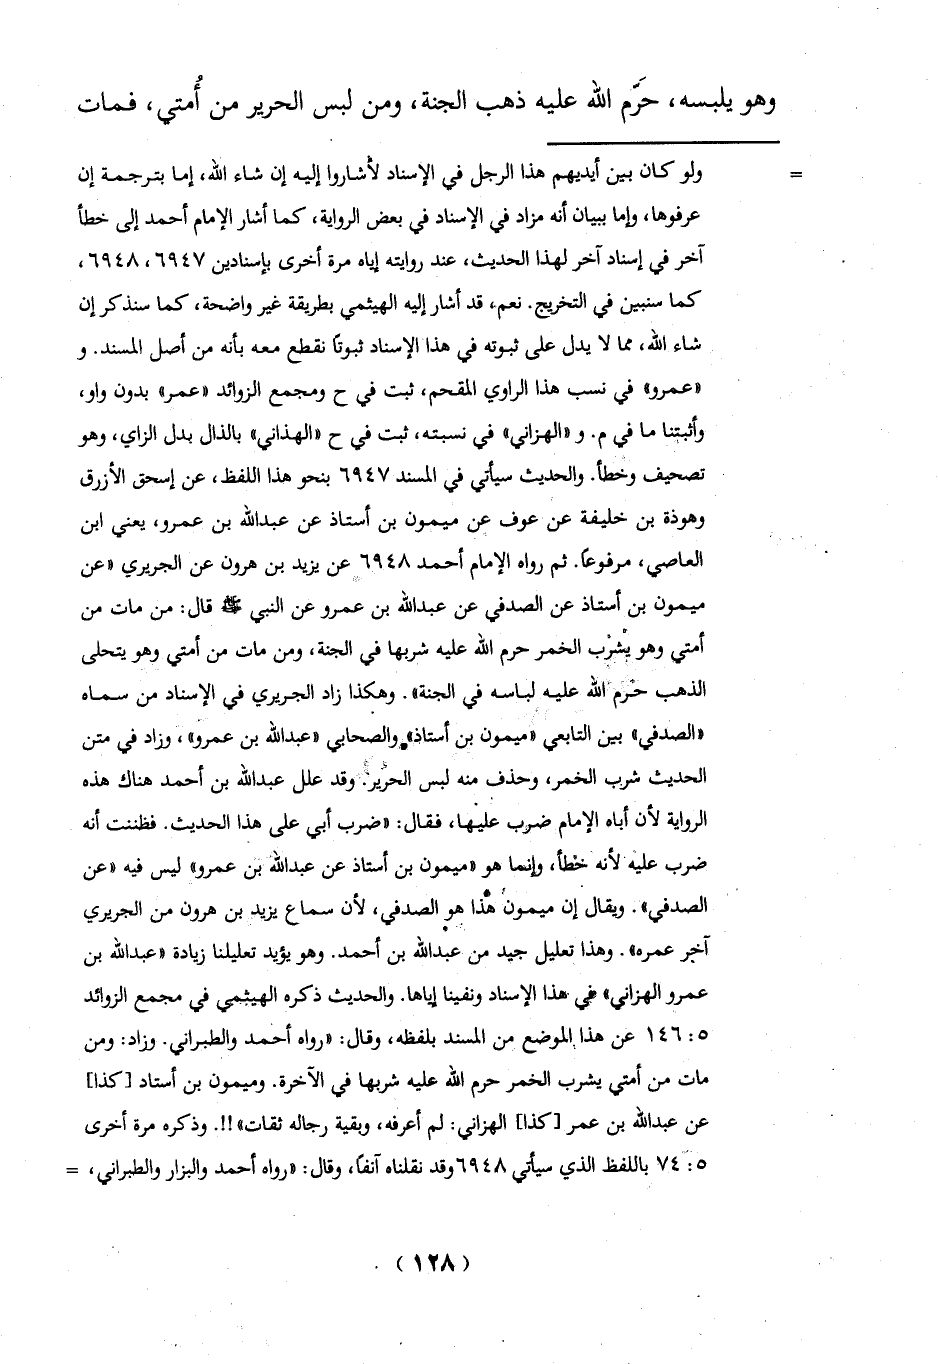 وهو يلبسه، حرَّم الله عليه ذهب الجنة، ومن لبس الحرير من أُمتي، فمات
= ولو كان بين أيديهم هذا الرجل في الإسناد لأشاروا إليه إن شاء الله، إما بترجمة إن
عرفوها، وإما ببيان أنه مزاد في الإسناد في بعض الرواية، كما أشار الإمام أحمد إلى خطأ
آخر في إسناد آخر لهذا الحديث، عند روايته إياه مرة أخرى بإسنادين ٦٩٤٧، ٦٩٤٨،
كما سنبين في التخريج. نعم، قد أشار إليه الهيثمي بطريقة غير واضحة، كما سنذكر إن
شاء الله، مما لا يدل على ثبوته في هذا الإسناد ثبوتًا نقطع معه بأنه من أصل المسند. و
«عمرو» في نسب هذا الراوي المقحم، ثبت في ح ومجمع الزوائد «عمر» بدون واو،
وأثبتنا ما في م. و «الهزاني» في نسبته، ثبت في ح «الهذاني» بالذال بدل الزاي، وهو
تصحيف وخطأ. والحديث سيأتي في المسند ٦٩٤٧ بنحو هذا اللفظ، عن إسحق الأزرق
وهوذة بن خليفة عن عوف عن ميمون بن أستاذ عن عبدالله بن عمرو، يعني ابن
العاصي، مرفوعاً. ثم رواه الإمام أحمد ٦٩٤٨ عن يزيد بن هرون عن الجريري «عن
ميمون بن أستاذ عن الصدفي عن عبدالله بن عمرو عن النبي ﷺ قال: من مات من
أمتي وهو يشرب الخمر حرم الله عليه شربها في الجنة، ومن مات من أمتي وهو يتحلى
الذهب حرم الله عليه لباسه في الجنة». وهكذا زاد الجريري في الإسناد من سماه
«الصدفي» بين التابعي «ميمون بن أستاذ» والصحابي «عبدالله بن عمرو»، وزاد في متن
الحديث شرب الخمر، وحذف منه لبس الحرير. وقد علل عبدالله بن أحمد هناك هذه
الرواية لأن أباه الإمام ضرب عليها، فقال: «ضرب أبي على هذا الحديث. فظننت أنه
ضرب عليه لأنه خطأ، وإنما هو «ميمون بن أستاذ عن عبدالله بن عمرو» ليس فيه «عن
الصدفي». ويقال إن ميمون هذا هو الصدفي، لأن سماع يزيد بن هرون من الجريري
آخر عمره». وهذا تعليل جيد من عبدالله بن أحمد. وهو يؤيد تعليلنا زيادة «عبدالله بن
عمرو الهزاني» في هذا الإسناد ونفينا إياها. والحديث ذكره الهيثمي في مجمع الزوائد
٥: ١٤٦ عن هذا الموضع من المسند بلفظه، وقال: «رواه أحمد والطبراني. وزاد: ومن
مات من أمتي يشرب الخمر حرم الله عليه شربها في الآخرة. وميمون بن أستاد [كذا]
عن عبدالله بن عمر [كذا] الهزاني: لم أعرفه، وبقية رجاله ثقات»!!. وذكره مرة أخرى
٥: ٧٤ باللفظ الذي سيأتي ٦٩٤٨ وقد نقلناه آنفًا، وقال: «رواه أحمد والبزار والطبراني، =
(١٢٨)